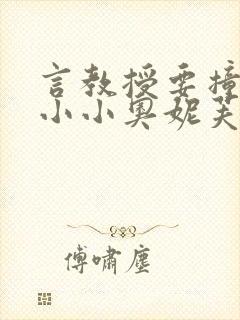 言教授要撞
小小奥妮芙
傅啸尘